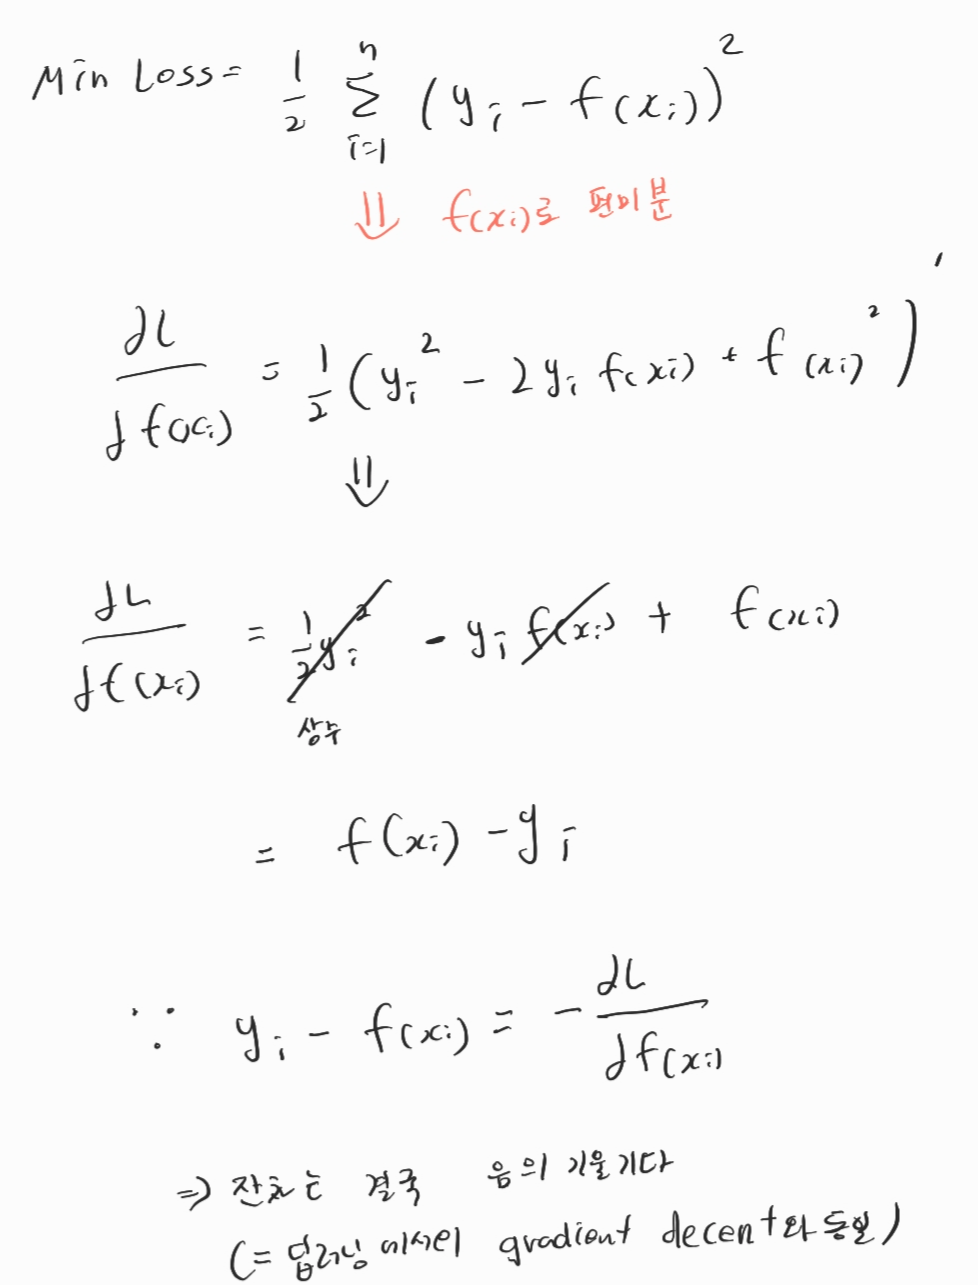 Min Loss = 1/2 Σ_{i=1}^{n} (y_i - f(x_i))^2
⇓ f(x_i)로 편미분
∂L/∂f(x_i) = 1/2 (y_i^2 - 2y_i f(x_i) + f(x_i)^2)'
⇓
∂L/∂f(x_i) = 1/2 y_i^2 - y_i f(x_i) + f(x_i)
상수
= f(x_i) - y_i
∵ y_i - f(x_i) = - ∂L/∂f(x_i)
⇒ 잔차는 결국 음의 기울기다
(= 딥러닝에서의 gradient decent와 동일)